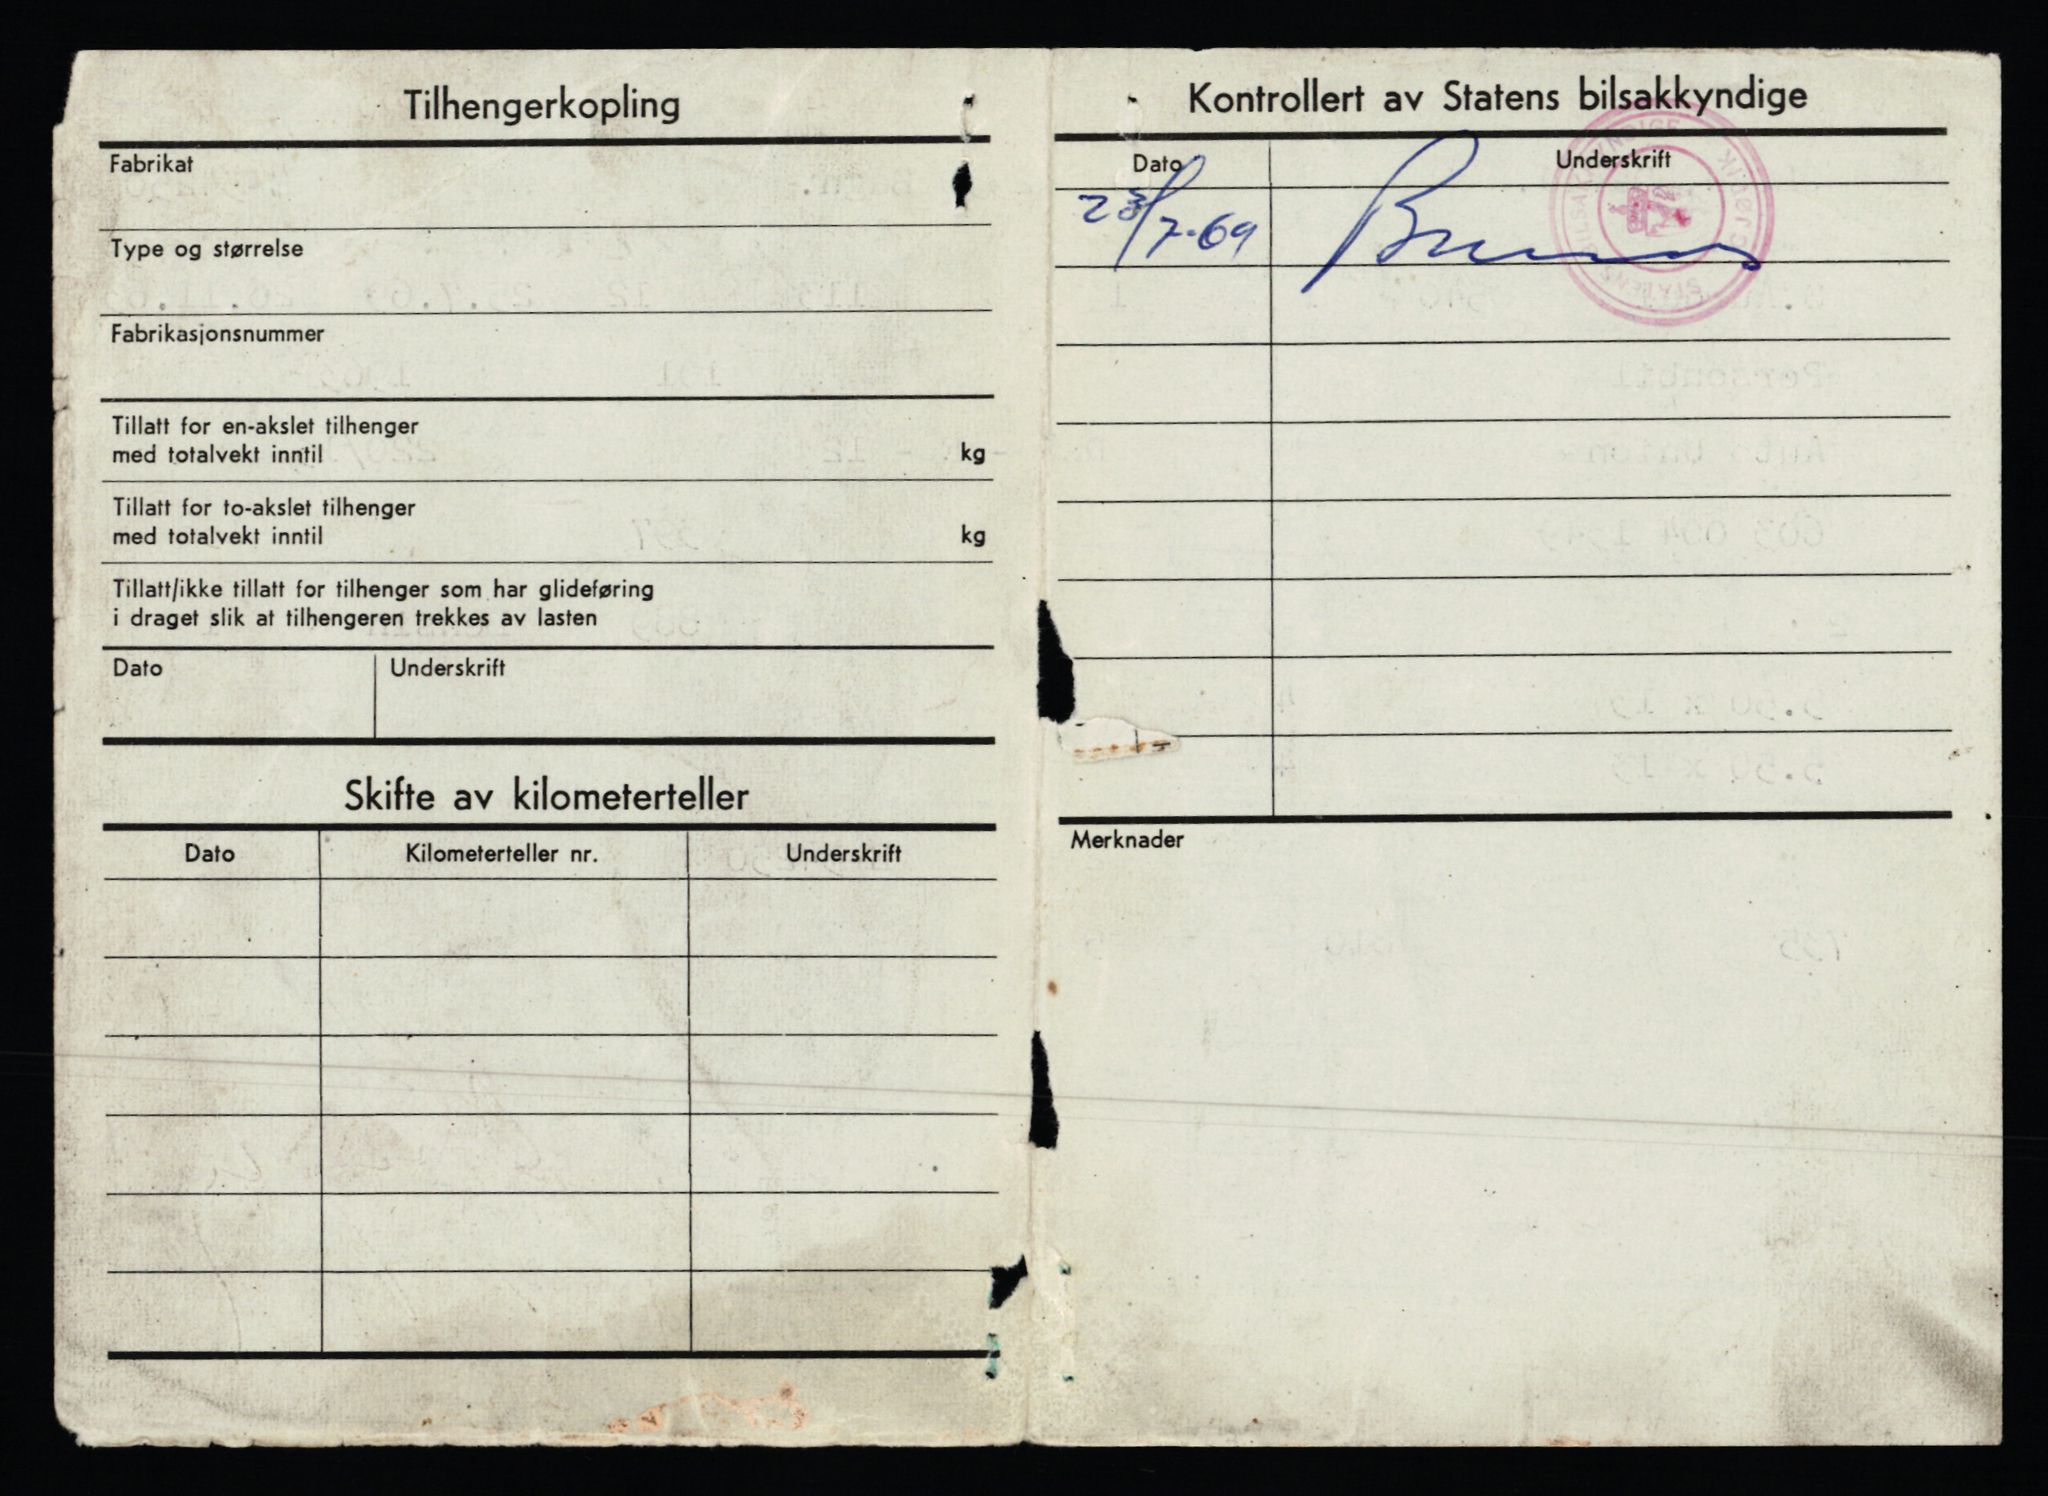 Tilhengerkopling
Fabrikat
Type og størrelse
Fabrikasjonsnummer
Tillatt for en-akslet tilhenger
med totalvekt inntil kg
Tillatt for to-akslet tilhenger
med totalvekt inntil kg
Tillatt/ikke tillatt for tilhenger som har glideføring
i draget slik at tilhengeren trekkes av lasten
Dato Underskrift
Skifte av kilometerteller
Dato Kilometerteller nr. Underskrift
Kontrollert av Statens bilsakkyndige
Dato Underskrift
23/7-69
STATENS BILSAKKYNDIGE GJØVIK
Merknader